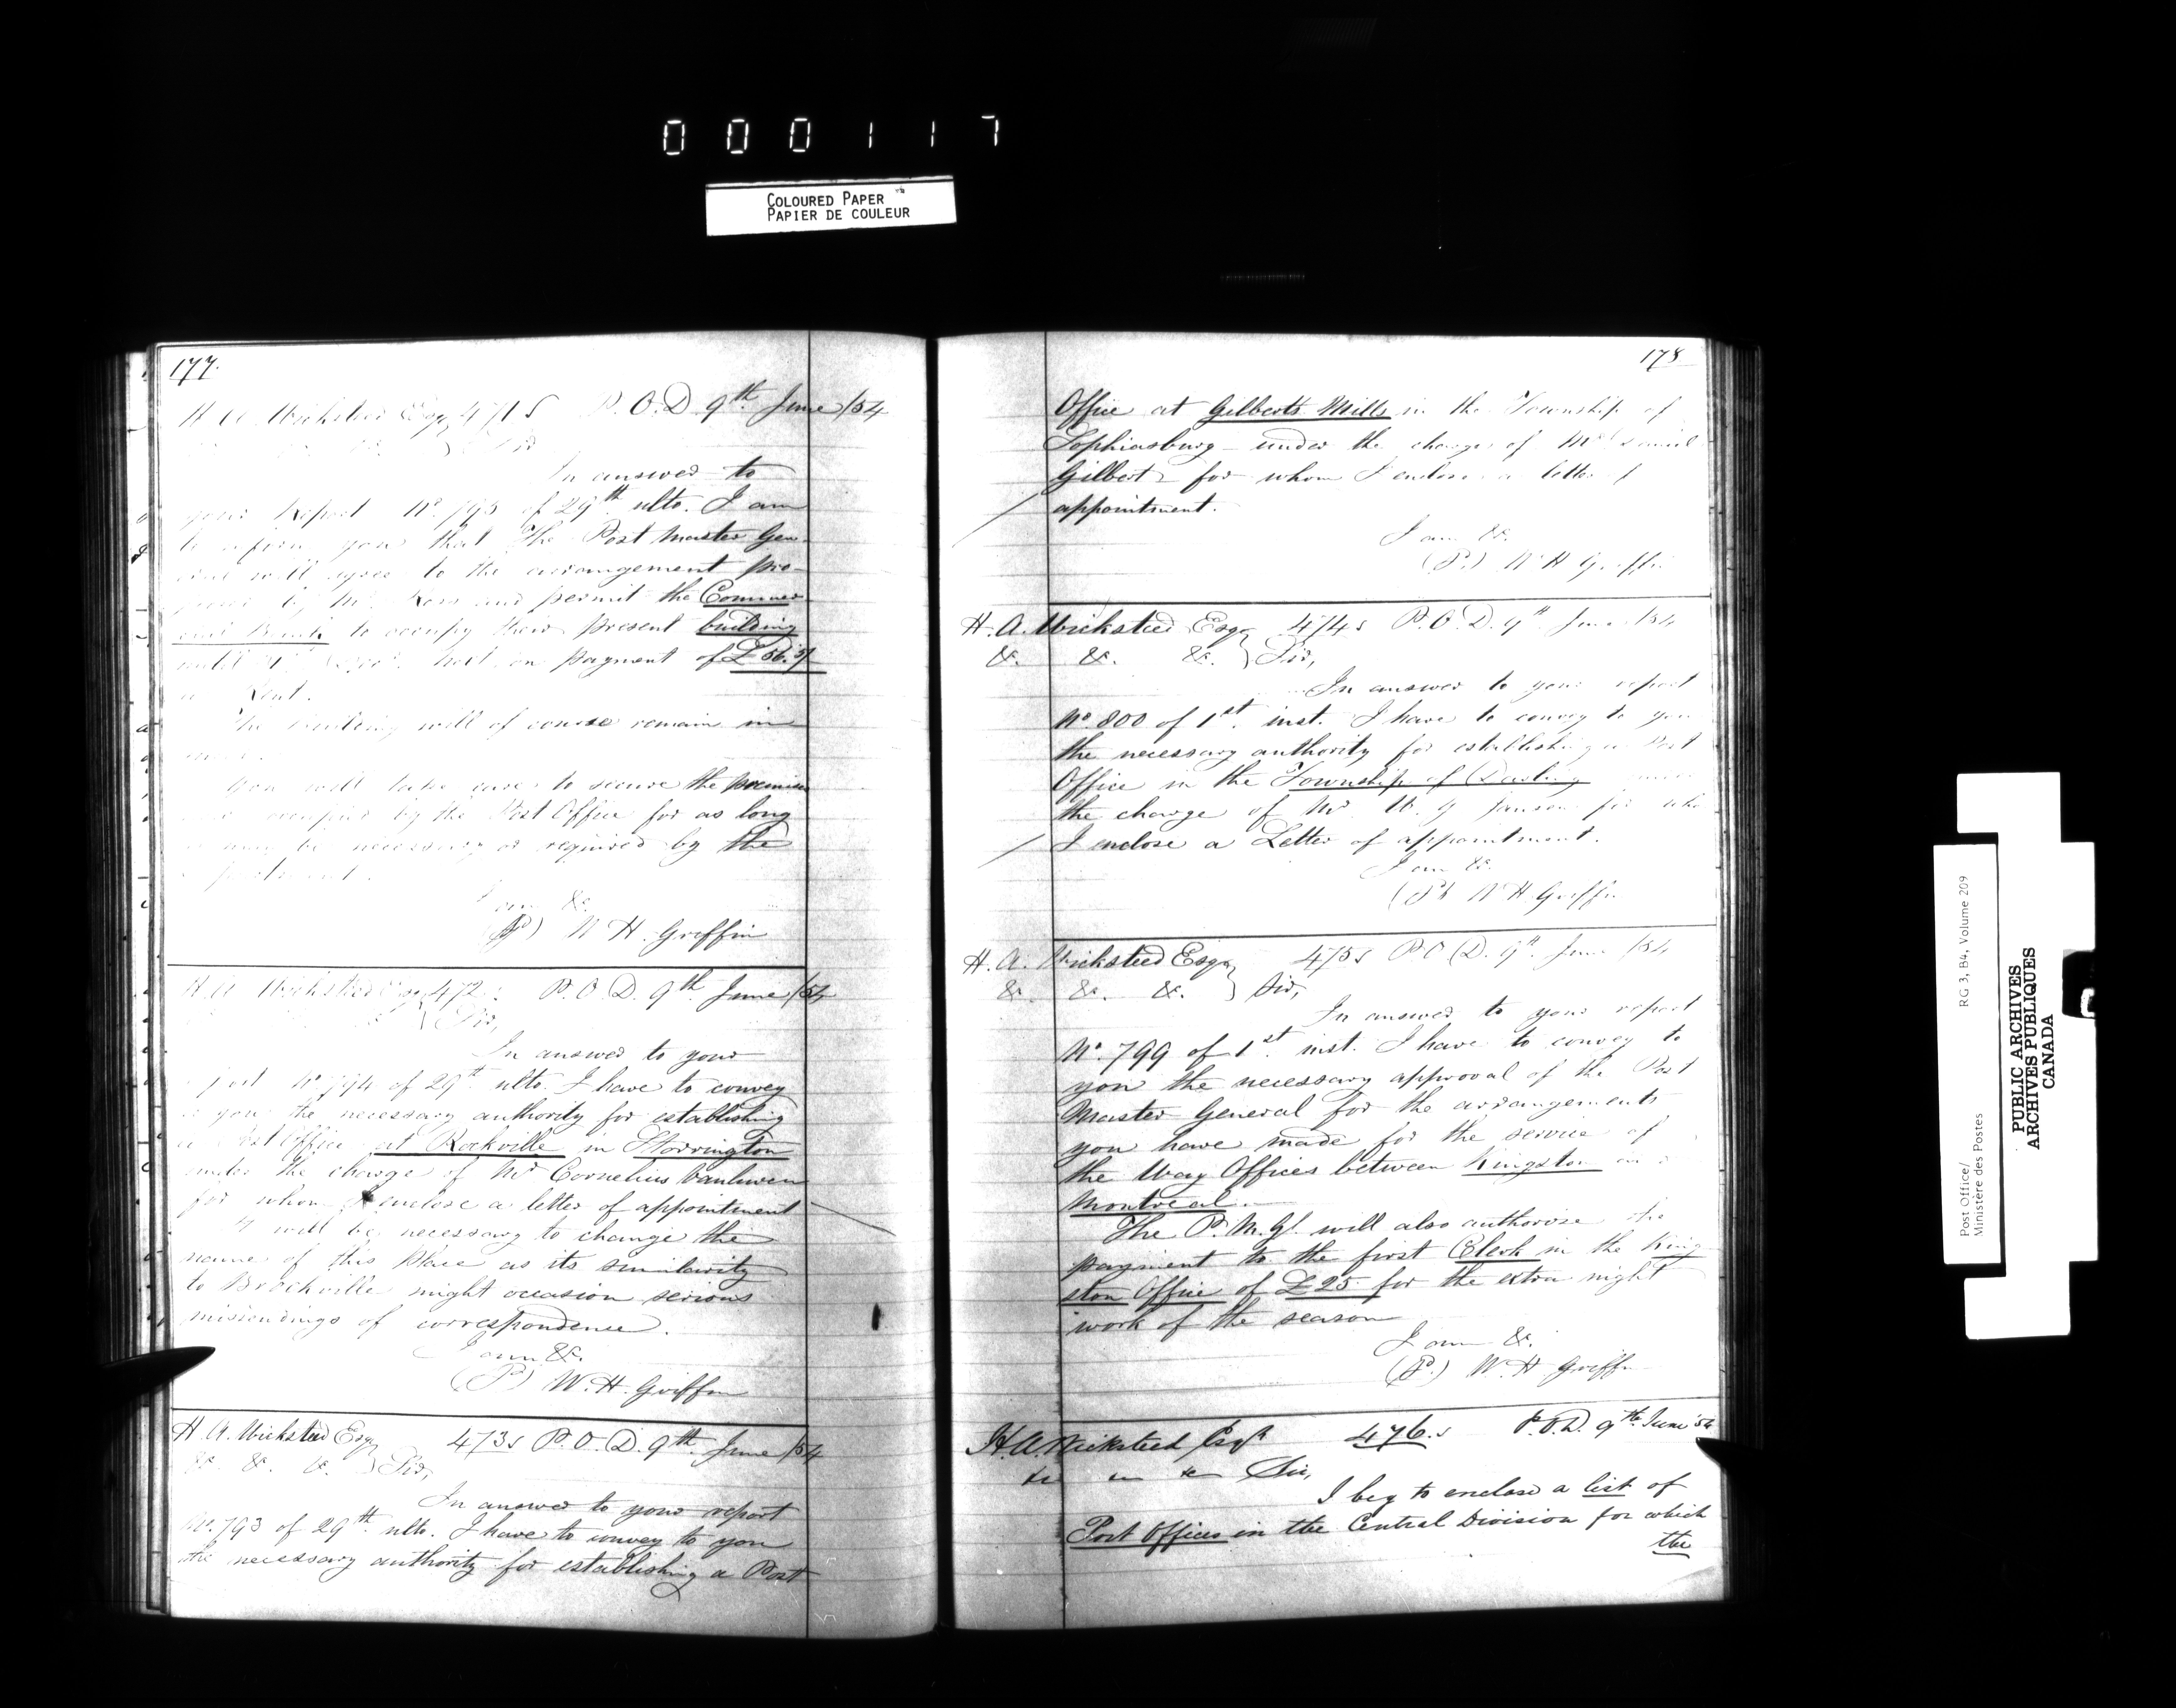 000117
COLOURED PAPER
PAPIER DE COULEUR
177.
H. A. Wicksteed Esq 471 S P. O. D 9th June /54
Sir
In answer to
your Report No. 795 of 29th ulto. I am
to inform you that The Post Master Gen-
eral will agree to the arrangement pro-
posed by Mr. Ross and permit the Commer-
cial Bank to occupy their present building
until next on payment of £56.5/
Rent.
The building will of course remain in
You will take care to secure the premises
occupied by the Post Office for as long
as may be necessary or required by the
Department.
I am &c.
(P) W H. Griffin
H. A. Wicksteed Esq 472 P. O. D. 9th June /54
&c. Sir,
In answer to your
report No. 794 of 29th ulto. I have to convey
to you the necessary authority for establishing
a Post Office at Rockville in Storrington
under the charge of Mr Cornelius Vanluven
for whom I enclose a letter of appointment
It will be necessary to change the
name of this Place as its similarity
to Brockville might occasion serious
missendings of correspondence.
I am &c.
(P) W. H. Griffin
H. A. Wicksteed Esq 473 s P. O. D. 9th June /54
&c. &c. &c. Sir,
In answer to your report
No. 793 of 29th ulto. I have to convey to you
the necessary authority for establishing a Post
178
Office at Gilberts Mills in the Township of
Sophiasburg under the charge of Mr Daniel
Gilbert for whom I enclose a letter of
appointment.
I am &c.
(P.) W H Griffin
H. A. Wicksteed Esq 474 s P. O. D. 9th June /54
&c. &c. &c. Sir,
In answer to your report
No. 800 of 1st. inst. I have to convey to you
the necessary authority for establishing a Post
Office in the Township of Darling under
the charge of Mr W. G for whom
I enclose a Letter of appointment.
I am &c.
(P) W H Griffin
H. A. Wicksteed Esq 475 s P O D. 9th June /54
&c. &c. &c. Sir,
In answer to your report
No. 799 of 1st. inst. I have to convey to
you the necessary approval of the Post
Master General for the arrangements
you have made for the service of
the Way Offices between Kingston and
Montreal.
The P. M. Gl. will also authorise the
payment to the first Clerk in the King-
ston Office of £25 for the extra night
work of the season
I am &c.
(P.) W. H Griffin
H. A. Wicksteed Esqr 476. s P. O. D. 9th June '54
&c &c &c Sir,
I beg to enclose a list of
Post Offices in the Central Division for which
the
Post Office/ RG 3, B4, Volume 209
Ministère des Postes
PUBLIC ARCHIVES
ARCHIVES PUBLIQUES
CANADA